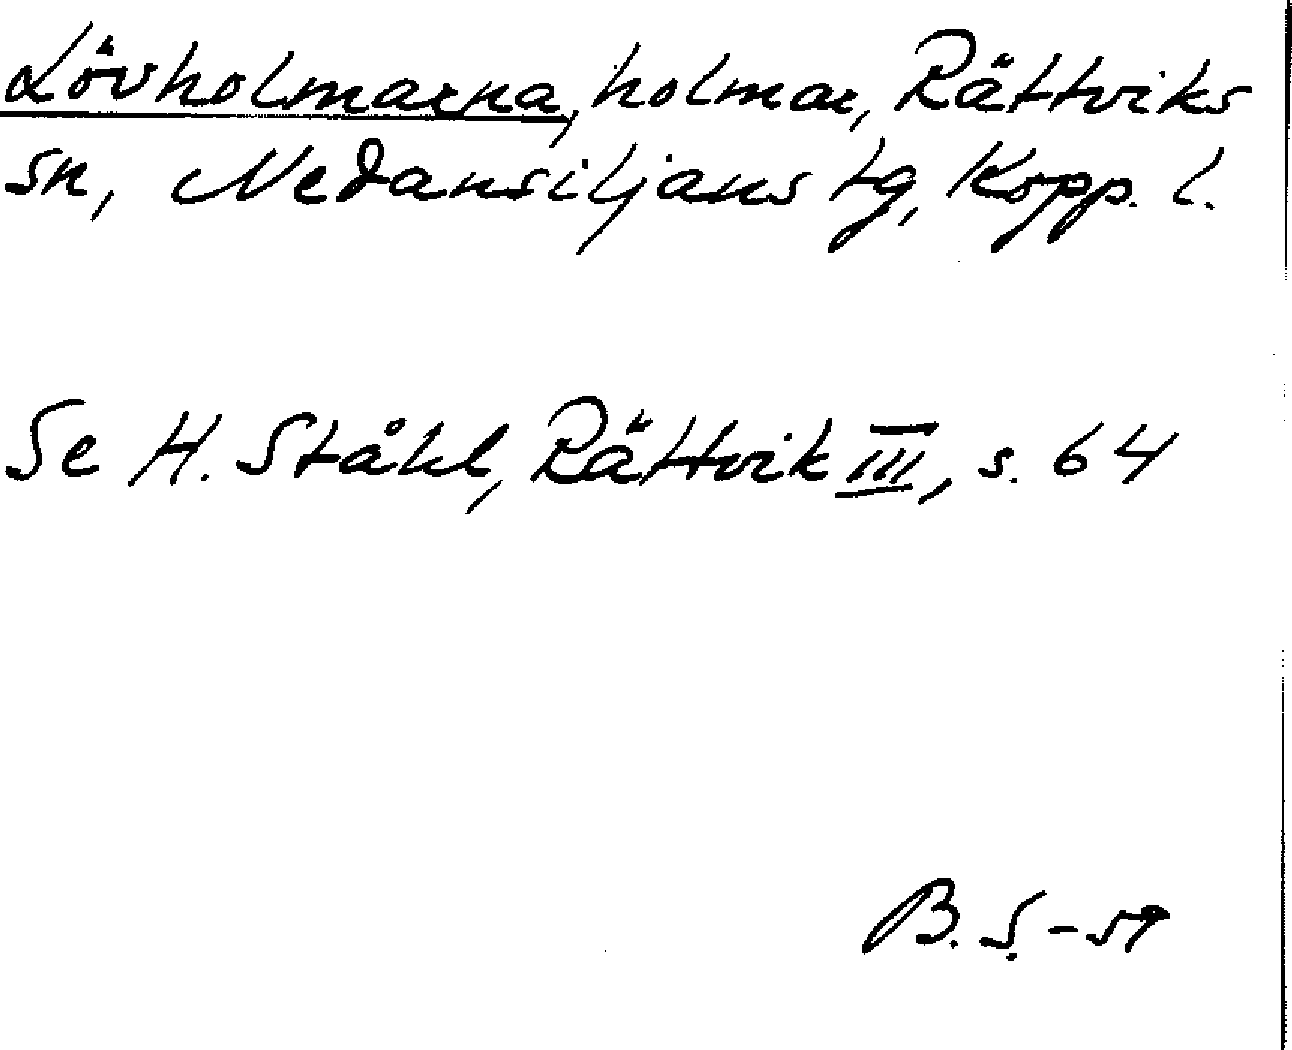 Lövholmarna, holmar, Rättviks
sn, Nedansiljans tg, Kopp. l.
Se H. Ståhl, Rättvik III, s. 64
B. S. - 59